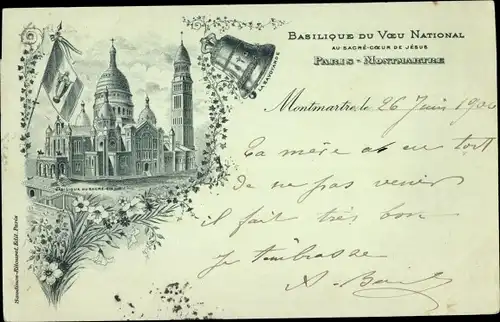 BASILIQUE DU VŒU NATIONAL
AU SACRÉ-CŒUR DE JÉSUS
PARIS - MONTMARTRE
LA SAVOYARDE
Montmartre, le 26 Juin 190
Ta mère a eu tort
de ne pas venir
il fait très bon
Je t'embrasse
A.
BASILIQUE DU SACRÉ-CŒUR
Édit. Paris